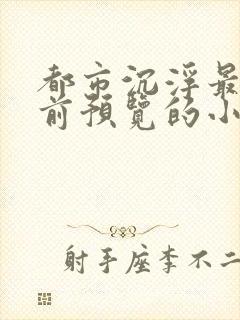 都市沉浮最
前預覽的小
射手座李不二